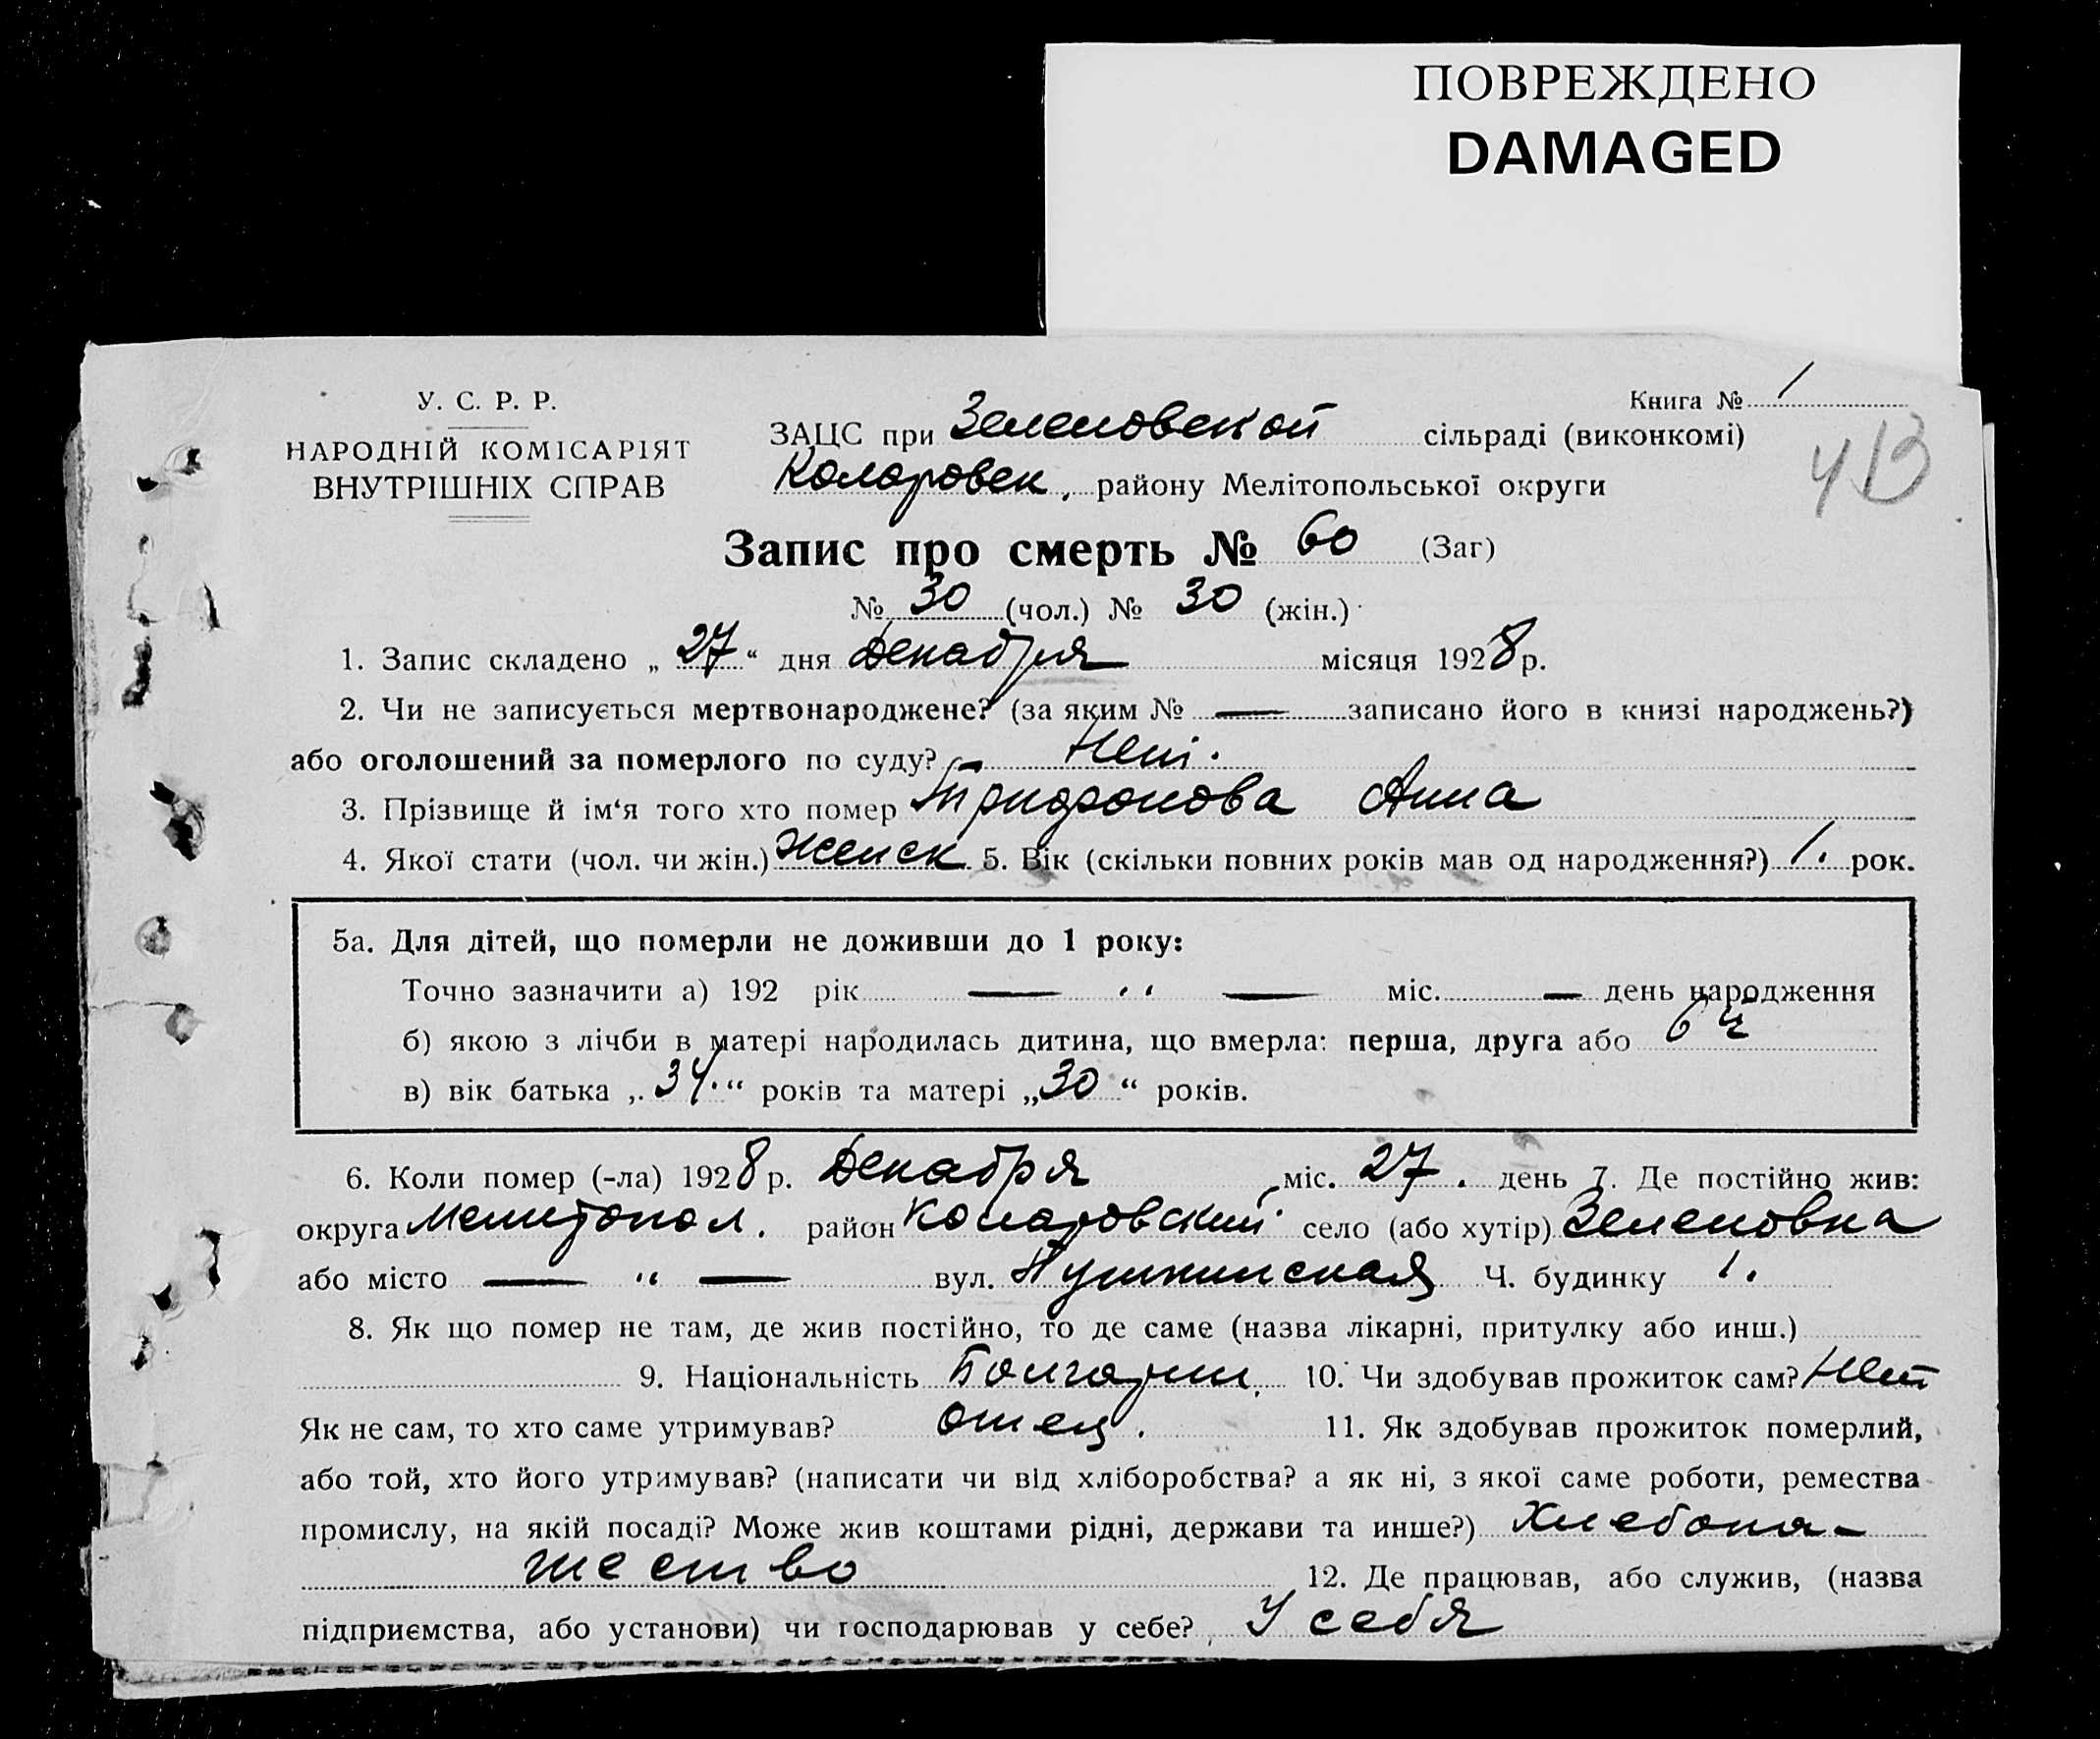 ПОВРЕЖДЕНО
DAMAGED
У. С. Р. Р.
НАРОДНІЙ КОМІСАРІЯТ
ВНУТРІШНІХ СПРАВ
Книга № 1
ЗАЦС при Зеленовской сільраді (виконкомі)
Коларовск. району Мелітопольської округи
Запис про смерть № 60 (Заг)
№ 30 (чол.) № 30 (жін.)
1. Запис складено „ 27 “ дня Декабря місяця 1928 р.
2. Чи не записується мертвонароджене? (за яким № — записано його в книзі народжень?)
або оголошений за померлого по суду? Нет.
3. Прізвище й ім‘я того хто помер Трифонова Анна
4. Якої стати (чол. чи жін.) Женск 5. Вік (скільки повних років мав од народження?) 1. рок.
5а. Для дітей, що померли не доживши до 1 року:
Точно зазначити а) 192 рік — " — міс. — день народження
б) якою з лічби в матері народилась дитина, що вмерла: перша, друга або 6
в) вік батька „ 34. “ років та матері „ 30 “ років.
6. Коли помер (-ла) 1928 р. Декабря міс. 27. день 7. Де постійно жив:
округа Мелитопол. район Коларовский село (або хутір) Зеленовка
або місто — " — вул. Пушкинская Ч. будинку 1.
8. Як що помер не там, де жив постійно, то де саме (назва лікарні, притулку або инш.)
9. Національність Болгарин. 10. Чи здобував прожиток сам? Нет
Як не сам, то хто саме утримував? отец. 11. Як здобував прожиток померлий,
або той, хто його утримував? (написати чи від хліборобства? а як ні, з якої саме роботи, ремества
промислу, на якій посаді? Може жив коштами рідні, держави та инше?) Хлебопа-
шество 12. Де працював, або служив, (назва
підприємства, або установи) чи господарював у себе? У себя